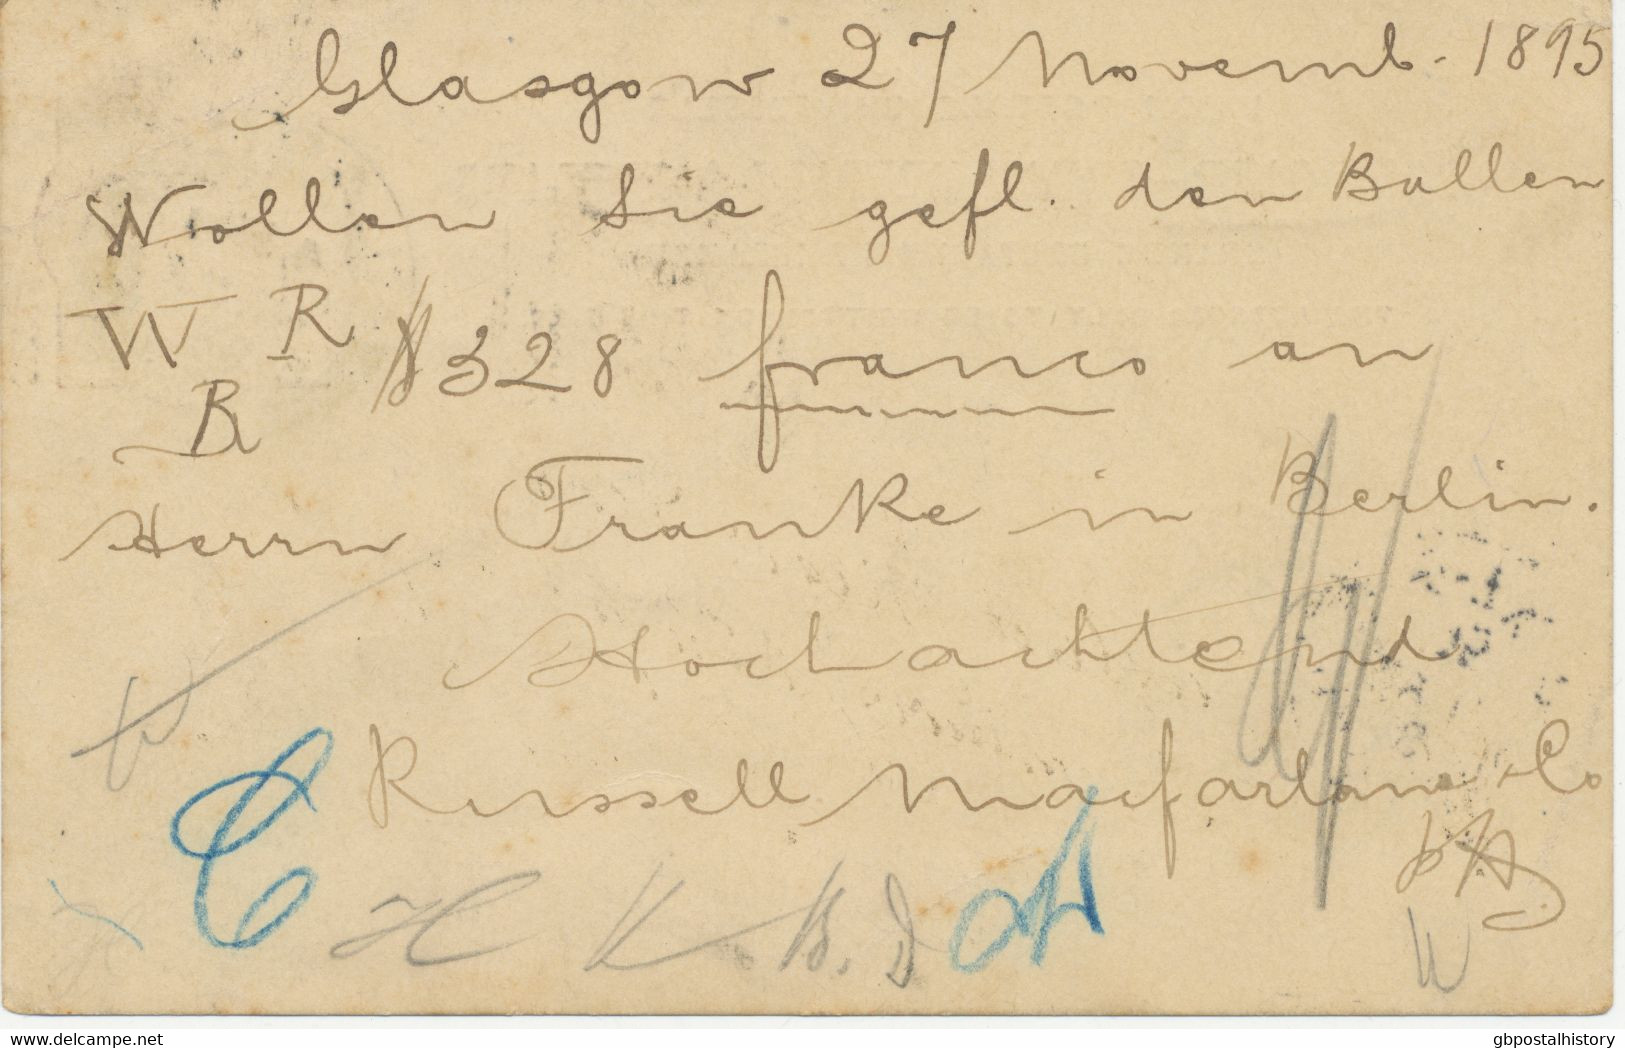 Glasgow 27 Novemb. 1895
Wollen Sie gefl. den Ballen
W R
B
# 328 franco an
Herrn Franke in Berlin.
Hochachtend
Russell Macfarlane & Co
H K B.
delcampe.net
gbpostalhistory